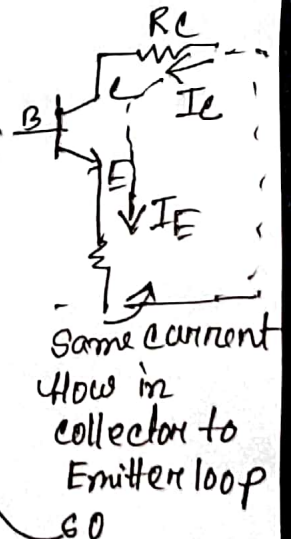 RC
C
IC
B
E
IE
Same current
flow in
collector to
Emitter loop
SO